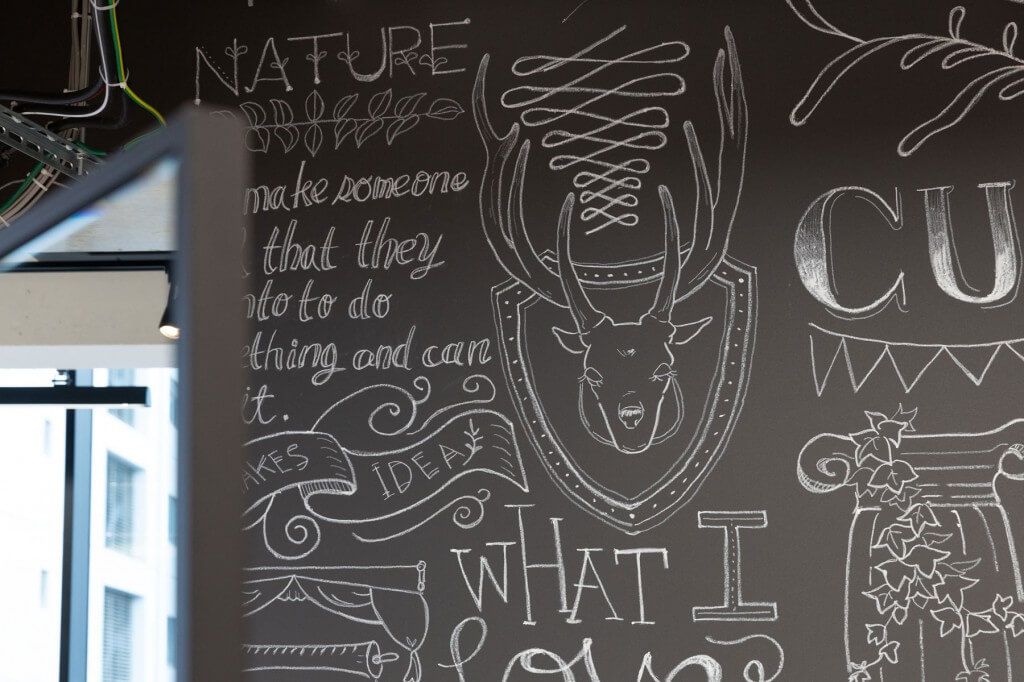 NATURE
make someone
that they
nto to do
ething and can
it.
AKES IDEA
WHAT I
CU